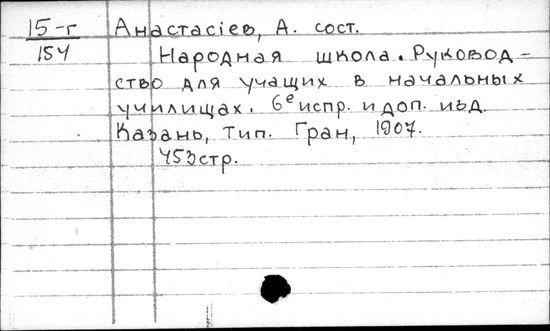 15-г Анастасіев, А. сост.
154
Народная школа. Руковод-
ство для учащих в начальных
училищах. 6е испр. и доп. изд.
Казань, Тип. Гран, 1907.
453 стр.